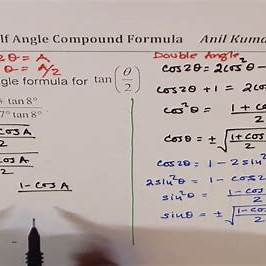 lf Angle Compound Formula Anil Kuma
2θ = A
θ = A/2
gle formula for tan(θ/2)
+ tan 8°
7° tan 8°
cosA
2
cosA
2
1-cosA
Double Angle
cos2θ = 2cos²θ -
cos2θ + 1 = 2co
cos²θ = 1+co / 2
cosθ = ± √1+cos / 2
cos2θ = 1 - 2sin²
2sin²θ = 1 - cos
sin²θ = 1-cos / 2
sinθ = ± √1-co / 2